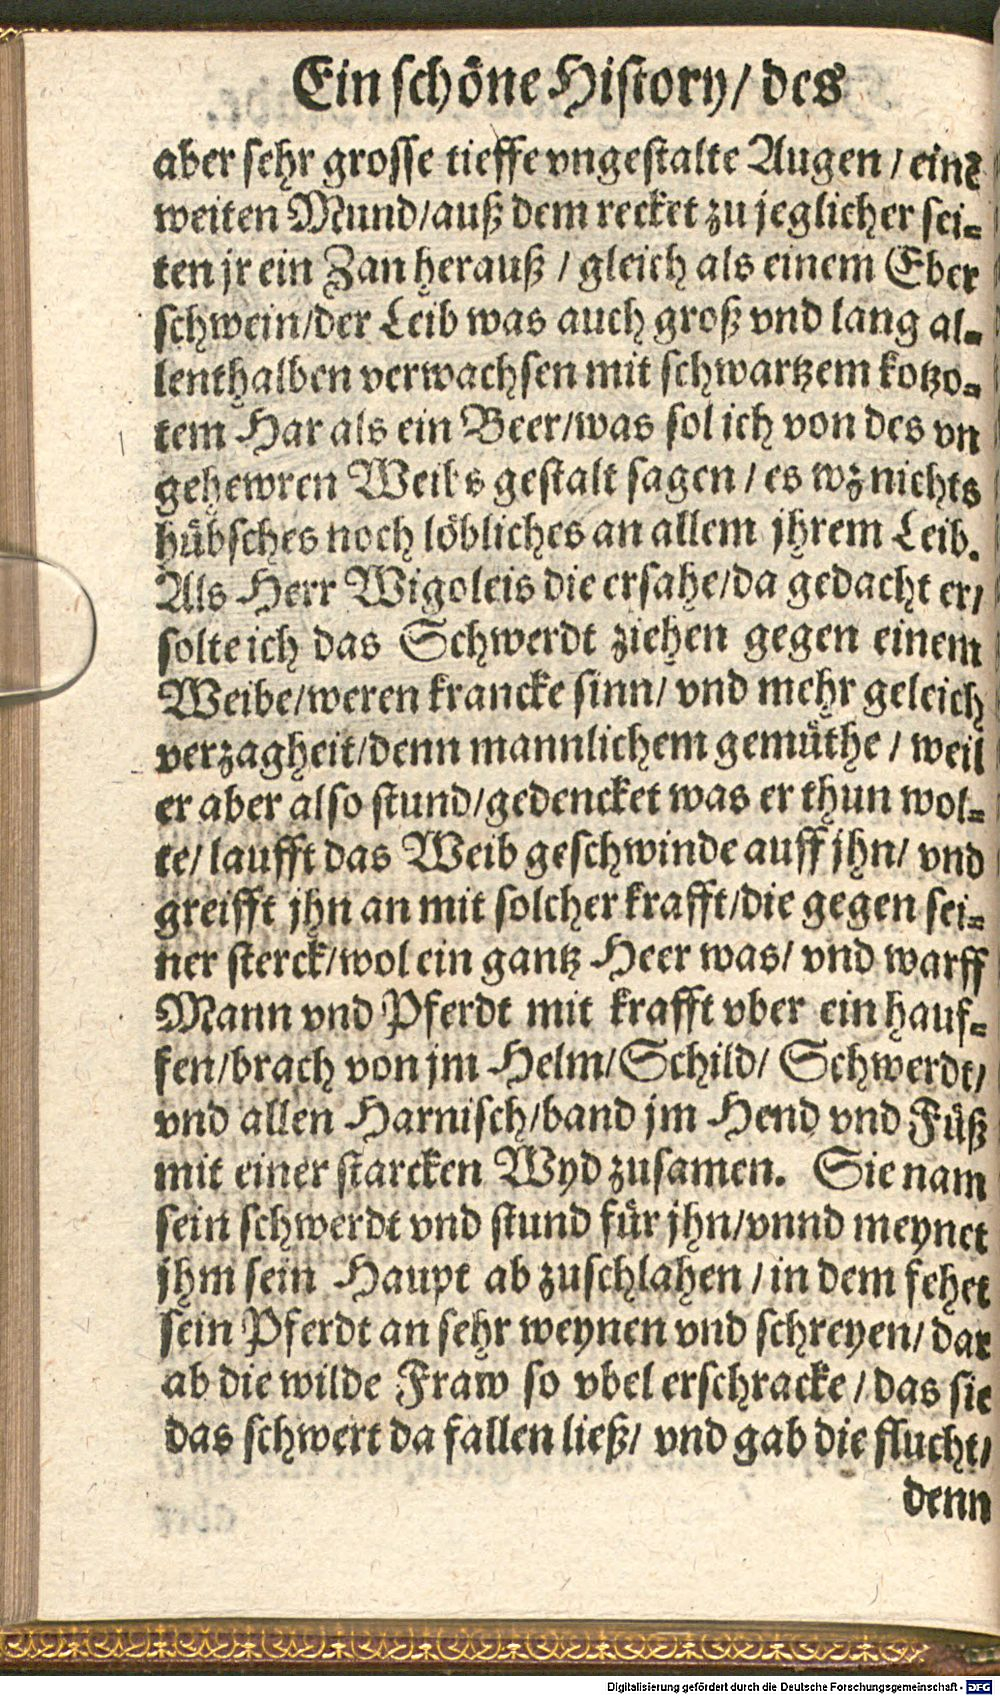 Ein schöne History/ des
aber sehr grosse tieffe vngestalte Augen / einē
weiten Mund/auß dem recket zu jeglicher sei-
ten jr ein Zan herauß / gleich als einem Eber
schwein/der Leib was auch groß vnd lang al-
lenthalben verwachsen mit schwartzem kotzo-
tem Har als ein Beer/was sol ich von des vn
gehewren Weibs gestalt sagen / es wz nichts
hübsches noch löbliches an allem jhrem Leib.
Als Herr Wigoleis die ersahe/da gedacht er/
solte ich das Schwerdt ziehen gegen einem
Weibe/weren krancke sinn/ vnd mehr geleich
verzagheit/denn mannlichem gemüthe / weil
er aber also stund/gedencket was er thun wol-
te/ laufft das Weib geschwinde auff jhn/ vnd
greifft jhn an mit solcher krafft/die gegen sei-
ner sterck/wol ein gantz Heer was/ vnd warff
Mann vnd Pferdt mit krafft vber ein hauf-
fen/brach von jm Helm/Schild/ Schwerdt/
vnd allen Harnisch/band jm Hend vnd Füß
mit einer starcken Wyd zusamen. Sie nam
sein schwerdt vnd stund für jhn/vnnd meynet
jhm sein Haupt ab zuschlahen / in dem fehet
sein Pferdt an sehr weynen vnd schreyen/ dar
ab die wilde Fraw so vbel erschracke / das sie
das schwert da fallen ließ/ vnd gab die flucht/
denn
Digitalisierung gefördert durch die Deutsche Forschungsgemeinschaft - DFG